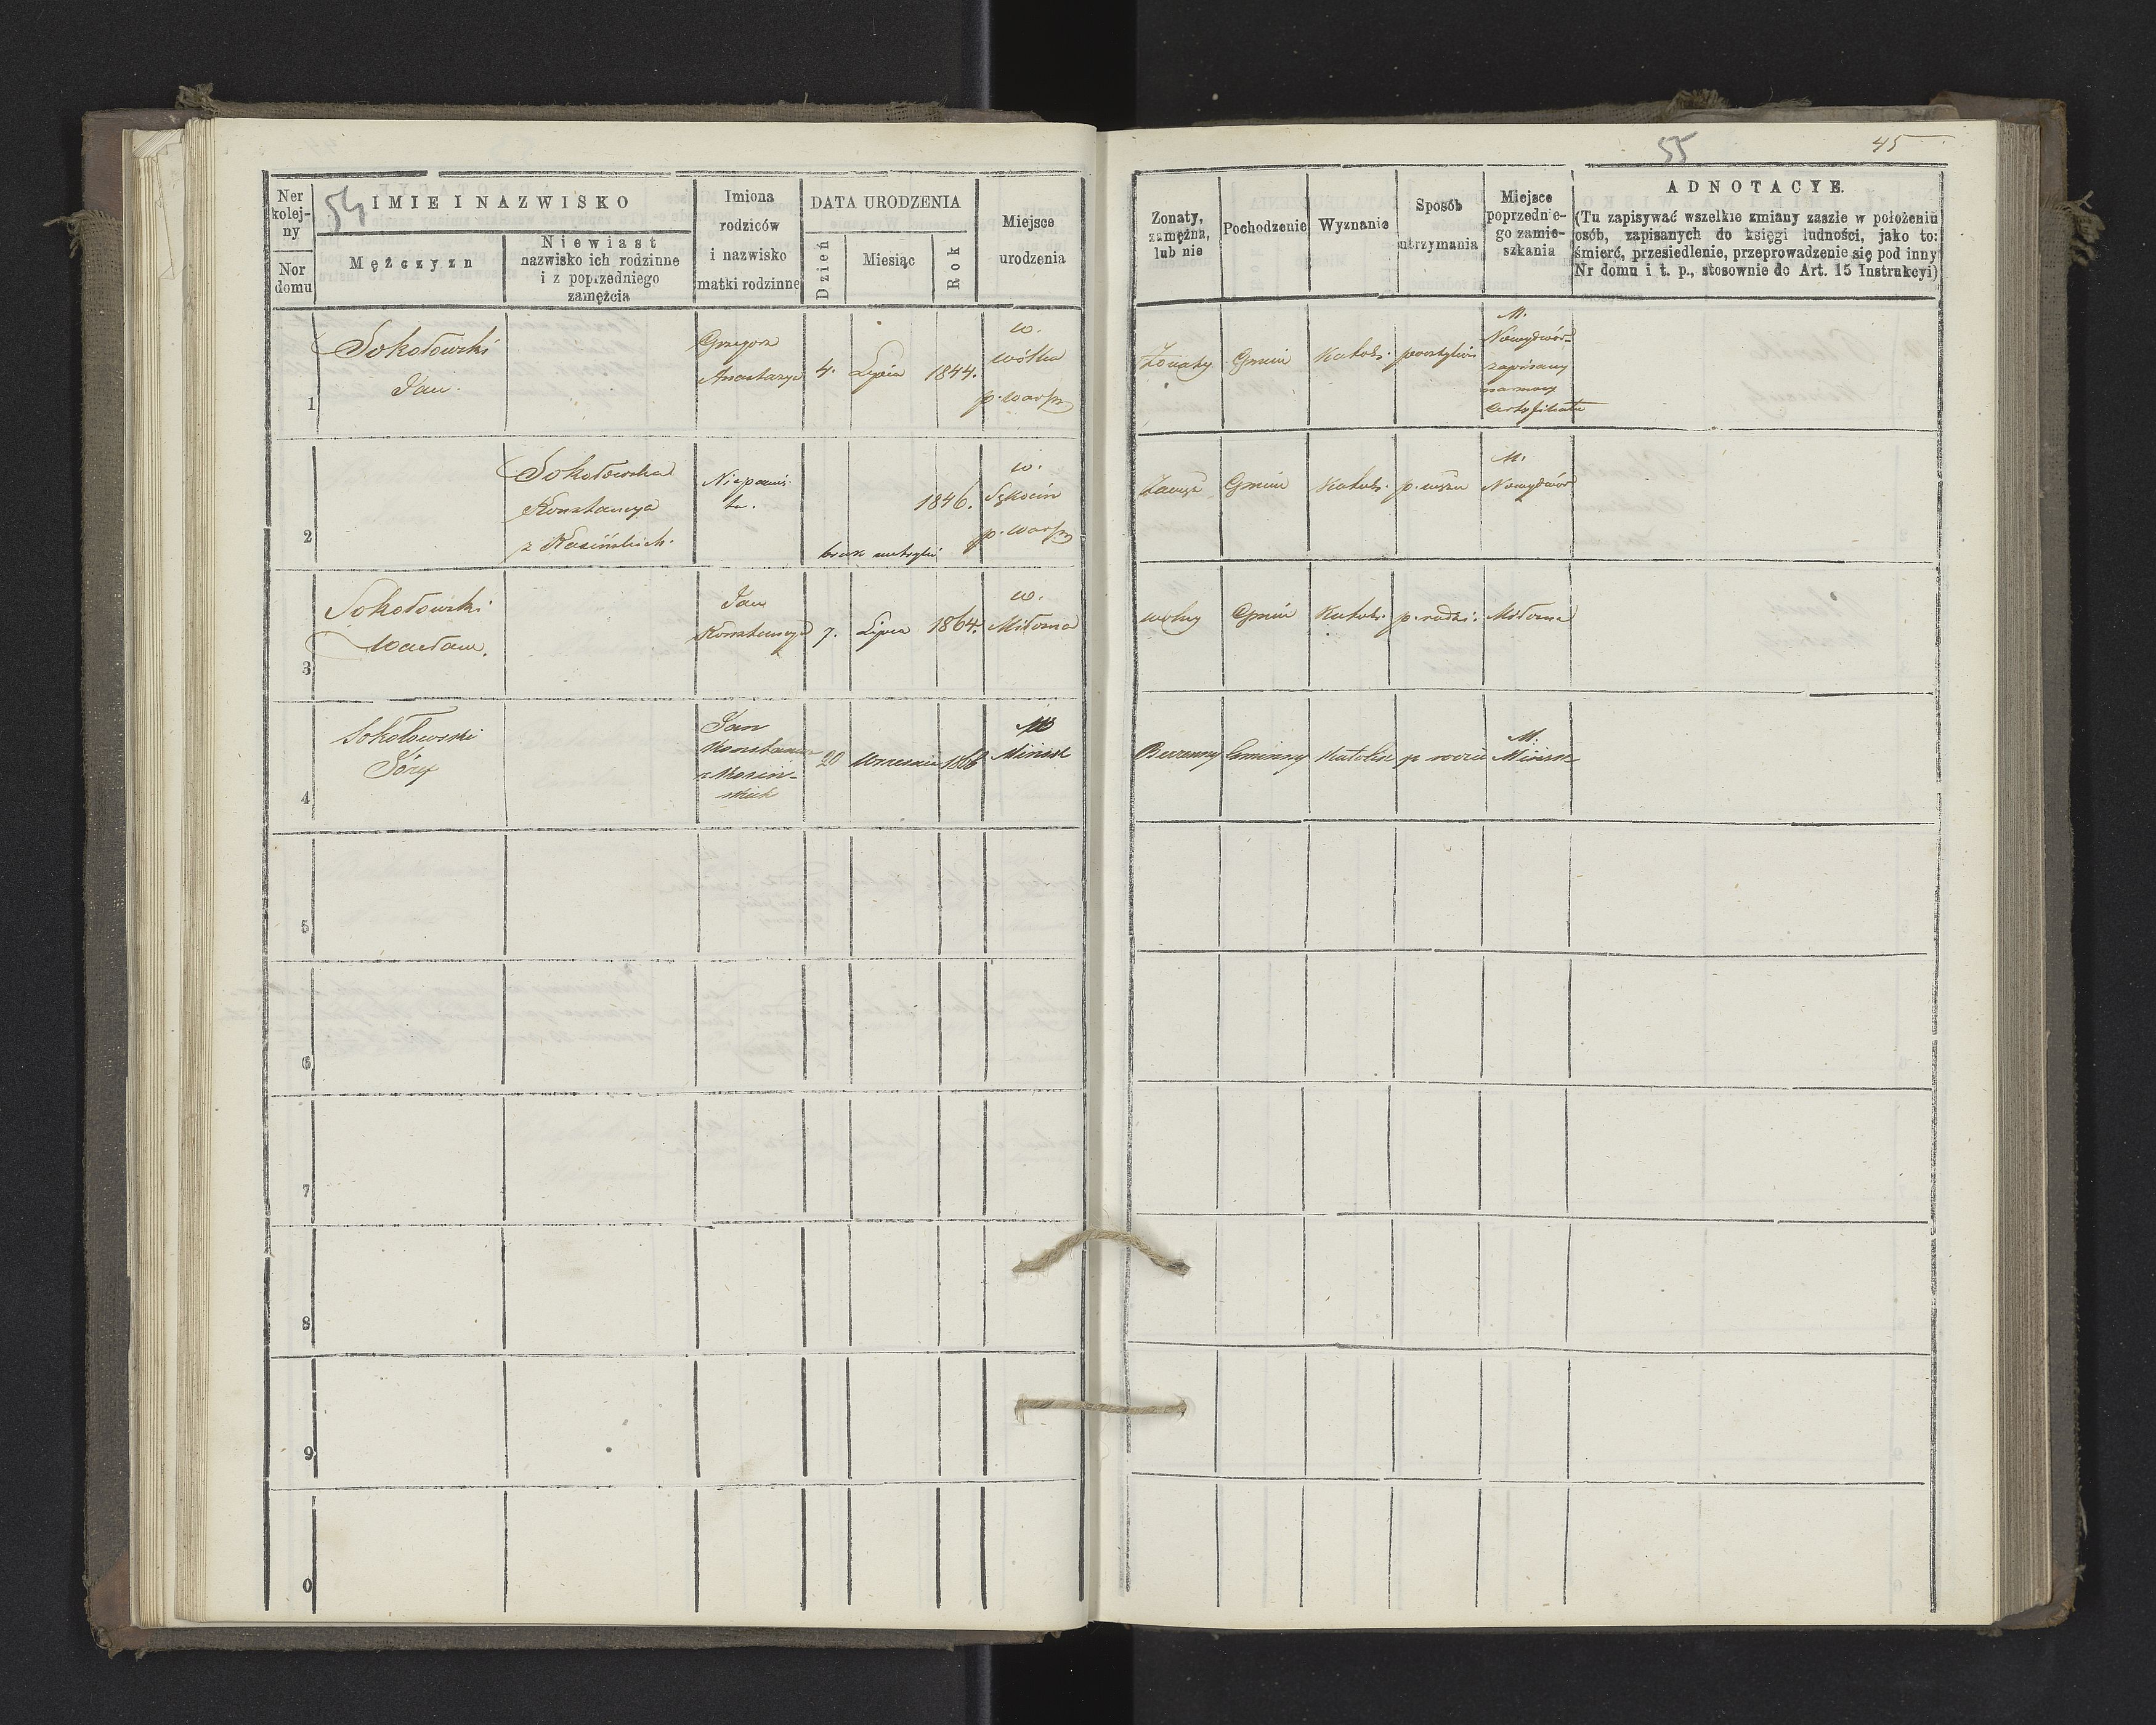 54
55
45
Ner kolej-ny
Nor domu
IMIE I NAZWISKO
Mężczyzn
Niewiast
nazwisko ich rodzinne
i z poprzedniego
zamężcia
Imiona
rodziców
i nazwisko
matki rodzinne
DATA URODZENIA
Dzień
Miesiąc
Rok
Miejsce
urodzenia
Zonaty,
zamężna,
lub nie
Pochodzenie
Wyznanie
Sposób
utrzymania
Miejsce
poprzednie-
go zamie-
szkania
ADNOTACYE.
(Tu zapisywać wszelkie zmiany zaszłe w położeniu
osób, zapisanych do księgi ludności, jako to:
śmierć, przesiedlenie, przeprowadzenie się pod inny
Nr domu i t. p., stosownie do Art. 15 Instrukcyi)
1
Sokołowski
Jan.
Grzegorz
Anastazya
4. Lipca 1844.
w.
Wólka
p. Warsz
Żonaty Gmin Katol.
M.
Nowydwór
zapisany
na mocy
Certyfikatu
2
Sokołowska
Konstancya
z Kasińskich.
Niepamię-
ta.
1846.
brak metryki
w.
Sękocin
p. Warsz
Zamęż Gmin Katol. p. mężu
M.
Nowydwór
3
Sokołowski
Wacław.
Jan
Konstancya
7. Lipca 1864.
w.
Miłosna
wolny Gmin Katol. p. rodzi. Miłosna
4
Sokołowski
Józef
Jan
Konstancya
z Kasiń-
skich
20 Września 1868
M
Mińsk
Bezżenny Gminny Katolik
M.
Mińsk
5
6
7
8
9
0